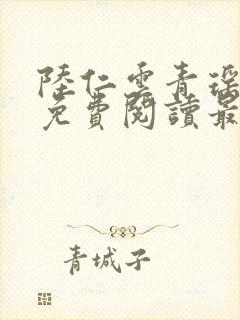 陸仁雲青瑶
免費閱讀最
青城子